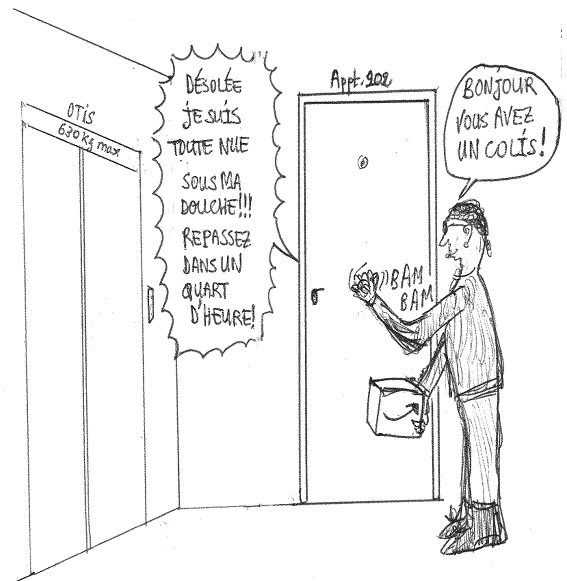 OTIS
630 Kg max
DÉSOLÉE
JE SUIS
TOUTE NUE
SOUS MA
DOUCHE!!!
REPASSEZ
DANS UN
QUART
D'HEURE!
Appt. 202
BONJOUR
VOUS AVEZ
UN COLIS!
BAM
BAM